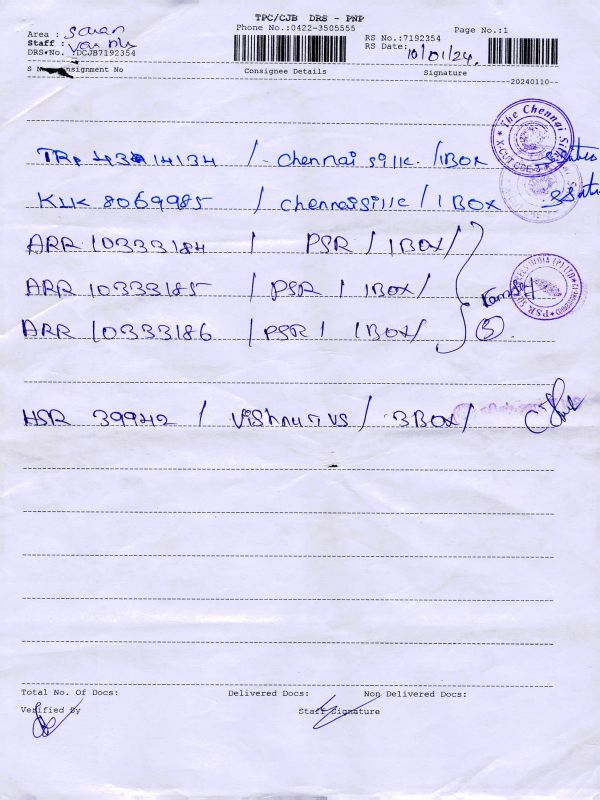 TPC/CJB DRS - PNP
Phone No.:0422-3505555
Page No.:1
Area : Saran
Staff :
RS No.:7192354
DRS No. YDCJB7192354
RS Date: 10/01/24
Consignment No Consignee Details Signature
20240110
The Chennai Sil
TRP 4314134 / Chennai Silk. / 1BOX
KLK 8069985 / chennaisilk / 1 BOX
ARR 10333184 / PSR / 1BOX/
ARR 10333185 / PSR / 1BOX/
ARR 10333186 / PSR / 1BOX/
3
HSR 39942 / / 3BOX/
Total No. Of Docs: Delivered Docs: Non Delivered Docs:
Verified By Staff Signature